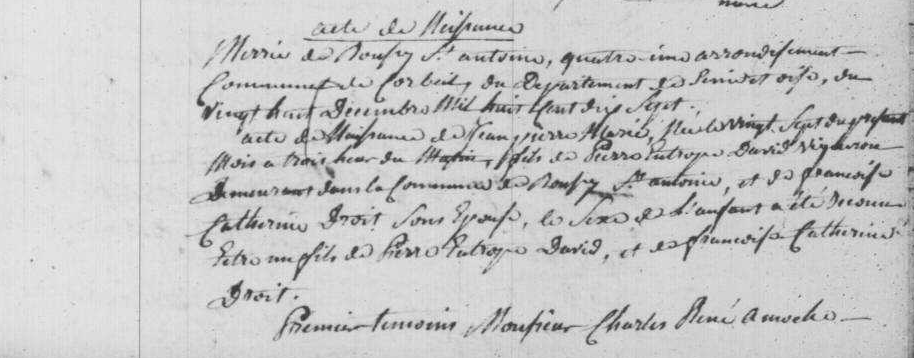 acte de Naissance
Merrie de Boussy St antoine, quatrieme arrondisement
Commune de Corbeil, du Departement de Seine et oise, du
Vingt huit Decembre Mil huit Cent dix Sept.
acte de Naissance de Jean pierre Marie, Né le vingt Sept du present
Mois a trois heur du Matin, fils de Pierre Eutrope David vigneron
Demeurant dans la Commune de Boussy St antoine, et de francoise
Catherine Droit Sons Epouse, le Sexe de L'anfant a été Reconnu
Estre un fils de Pierre Eutrope David, et de francoise Catherine
Droit.
Premier temoins Monsieur Charles René